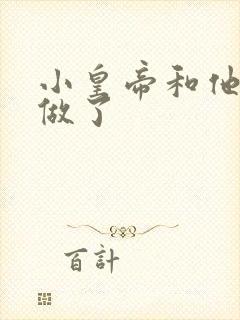 小皇帝和他
做了
百計